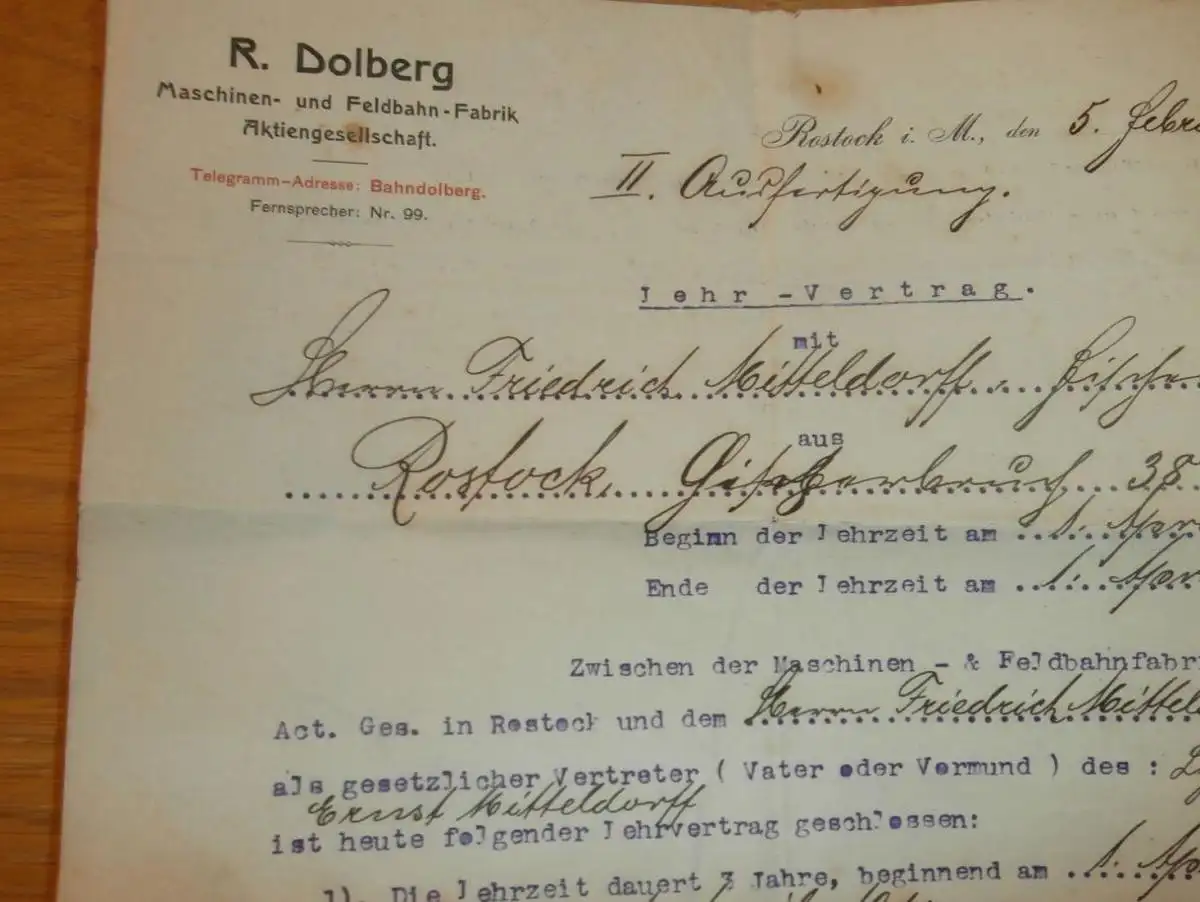 R. Dolberg
Maschinen- und Feldbahn-Fabrik
Aktiengesellschaft.
Telegramm-Adresse: Bahndolberg.
Fernsprecher: Nr. 99.
Rostock i. M., den 5. Febru
II. Ausfertigung.
Lehr-Vertrag.
mit
Herrn Friedrich Mitteldorff
aus
Rostock, 38
Beginn der Lehrzeit am 1. Apr
Ende der Lehrzeit am 1. Apr
Zwischen der Maschinen - & Feldbahnfabri
Act. Ges. in Rostock und dem Herrn Friedrich Mitteld
als gesetzlicher Vertreter ( Vater oder Vormund ) des :
Ernst Mitteldorff
ist heute folgender Lehrvertrag geschlossen:
1). Die Lehrzeit dauert 3 Jahre, beginnend am 1. Apr